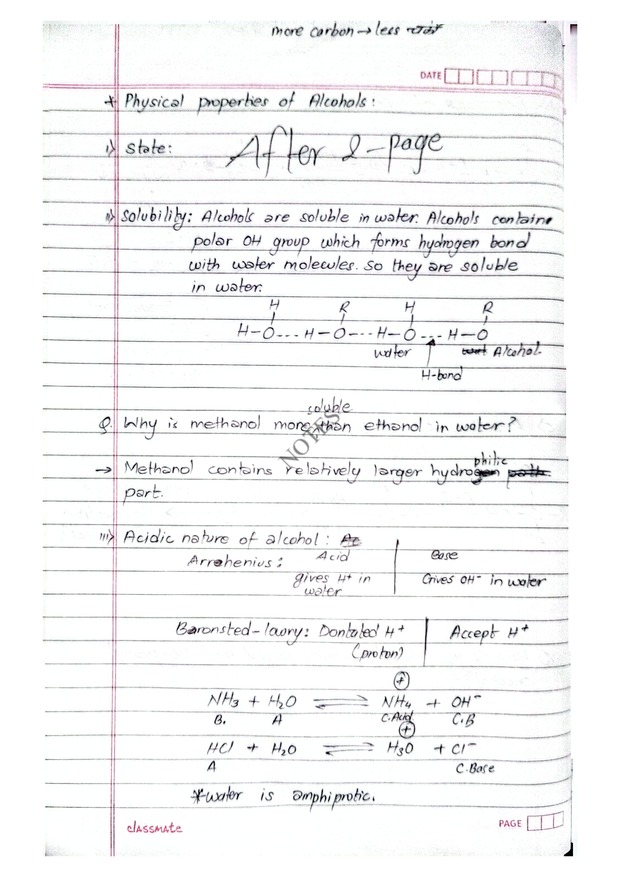 more carbon → less
DATE
* Physical properties of Alcohols:
i) State: After 2-page
ii) Solubility: Alcohols are soluble in water. Alcohols contains
polar OH group which forms hydrogen bond
with water molecules. So they are soluble
in water.
H R H R
H-O---H-O---H-O---H-O
water Alcohol.
H-bond
soluble
Q. Why is methanol more than ethanol in water?
NOTES
→ Methanol contains relatively larger hydrophilic
part.
iii) Acidic nature of alcohol:
Arrohenius: Acid Base
gives H⁺ in Gives OH⁻ in water
water
Baronsted-lowry: Dontated H⁺ Accept H⁺
(proton)
NH₃ + H₂O ⇌ NH₄⊕ + OH⁻
B. A C.Acid C.B
HCl + H₂O ⇌ H₃O⊕ + Cl⁻
A C.Base
*water is amphiprotic.
classmate
PAGE